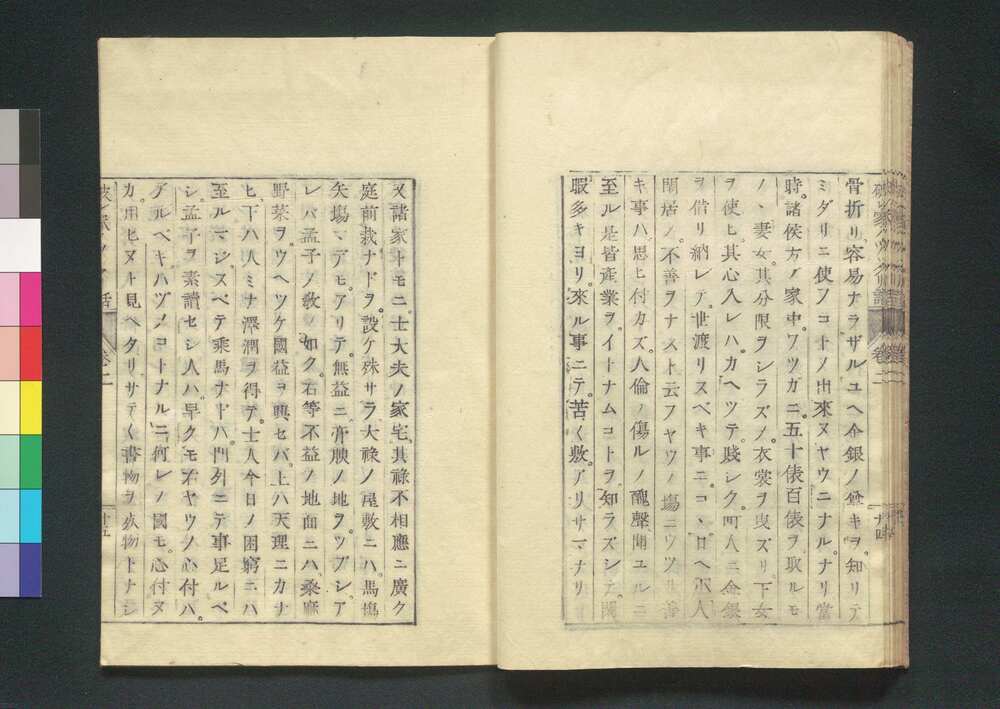 骨折リ容易ナラザルユヘ金銀ノ尊キヲ知リテ
ミダリニ使フコトノ出來ヌヤウニナルナリ當
時諸侯方ノ家中ワツカニ五十俵百俵ヲ取ルモ
ノヽ妻女其分限ヲシラズノ衣裳ヲ曳ズリ下女
ヲ使ヒ其心入レハカヘツテ賤シク町人ニ金銀
ヲ借リ納レテ世渡リスベキ事ニコヽロヘ小人
閒居ノ不善ヲナスト云フヤウノ場ニウツリ善
キ事ハ思ヒ付カズ人倫ノ傷ルノ醜聲聞ユルニ
至ル是皆產業ヲイトナムコトヲ知ラズシテ閑
暇多キヨリ來ル事ニテ苦々敷アリサマナリ
卷二
十四
又諸家トモニ士大夫ノ家宅其祿不相應ニ廣ク
庭前栽ナドヲ設ケ殊サラ大祿ノ屋敷ニハ馬場
矢場マデモアリテ無益ニ膏腴ノ地ヲツブシア
レバ孟子ノ敎ノ如ク右等不益ノ地面ニハ桑麻
野菜ヲウヘツケ國益ヲ興セバ上ハ天理ニカナ
ヒ下ハ人ミナ澤潤ヲ得テ士人今日ノ困窮ニハ
至ルマジスベテ乘馬ナドハ門外ニテ事足ルベ
シ孟子ヲ素讀セシ人ハ早クモ右ヤウノ心付ハ
アルベキハヅノコトナルニ何レノ國モ心付ヌ
カ用ヒヌト見ヘタリサテ々書物ヲ玩物トナシ
卷二
十五